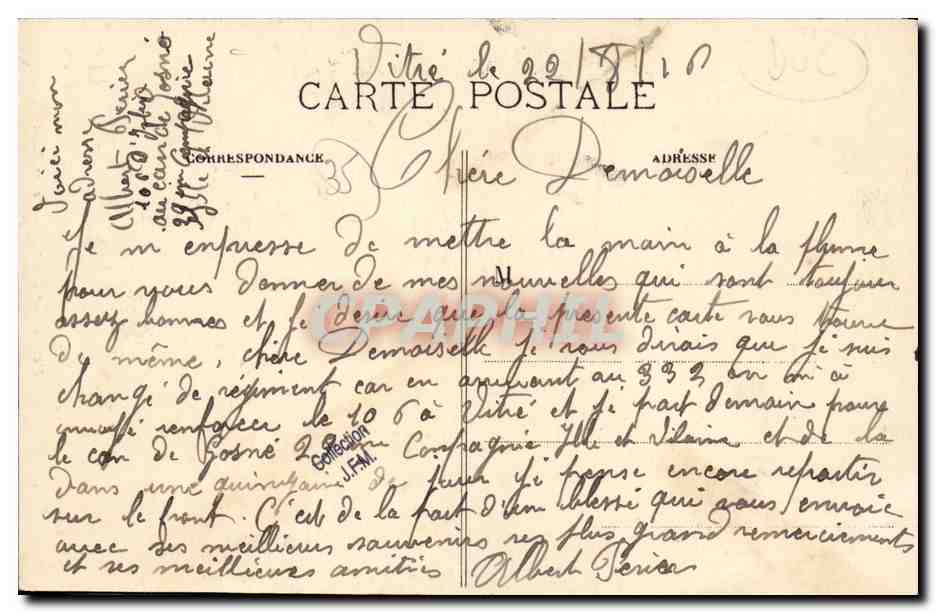 Vitré le 22/8/16
CARTE POSTALE
CORRESPONDANCE
ADRESSE
Chère Demoiselle
Voici mon
adresse
Albert Périer
106 d'Infie
au can de Gosné
29 em Compagnie
Ille et Vilaine
Je m enpresse de mettre la main à la plume
pour vous donner de mes nouvelles qui sont toujour
assez bonnes et je desire que la presente carte vous trouve
de même, chère Demoiselle je vous dirais que je suis
changé de régiment car en arrivant au 332 on m a
renforcer le 106 à Vitré et je part demain pour
le can de Gosné Compagnie Ille et Vilaine et de la
dans une quinzaine de jour je pense encore repartir
sur le front. C'est de la part d'un blessé qui vous envoie
avec ses meillieurs souvenirs ses plus grand remerciements
et ses meillieures amitiés Albert Périer
M
CPAPHIL
Collection
J.F.M.